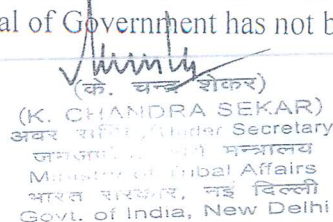 al of Government has not b
(के. चन्द्र शेकर)
(K. CHANDRA SEKAR)
अवर Under Secretary
मन्त्रालय
Ministry of Tribal Affairs
भारत सरकार, नई दिल्ली
Govt. of India, New Delhi